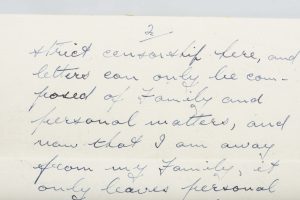 2
strict censorship here, and
letters can only be com-
posed of Family and
personal matters, and
now that I am away
from my Family, it
only leaves personal